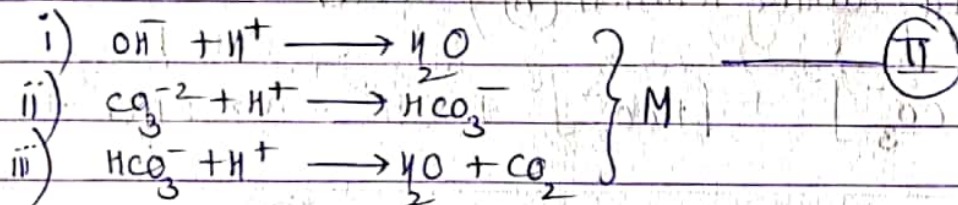 i) OH⁻ + H⁺ ⟶ H₂O
ii) CO₃⁻² + H⁺ ⟶ HCO₃⁻ } M ⸺ II
iii) HCO₃⁻ + H⁺ ⟶ H₂O + CO₂